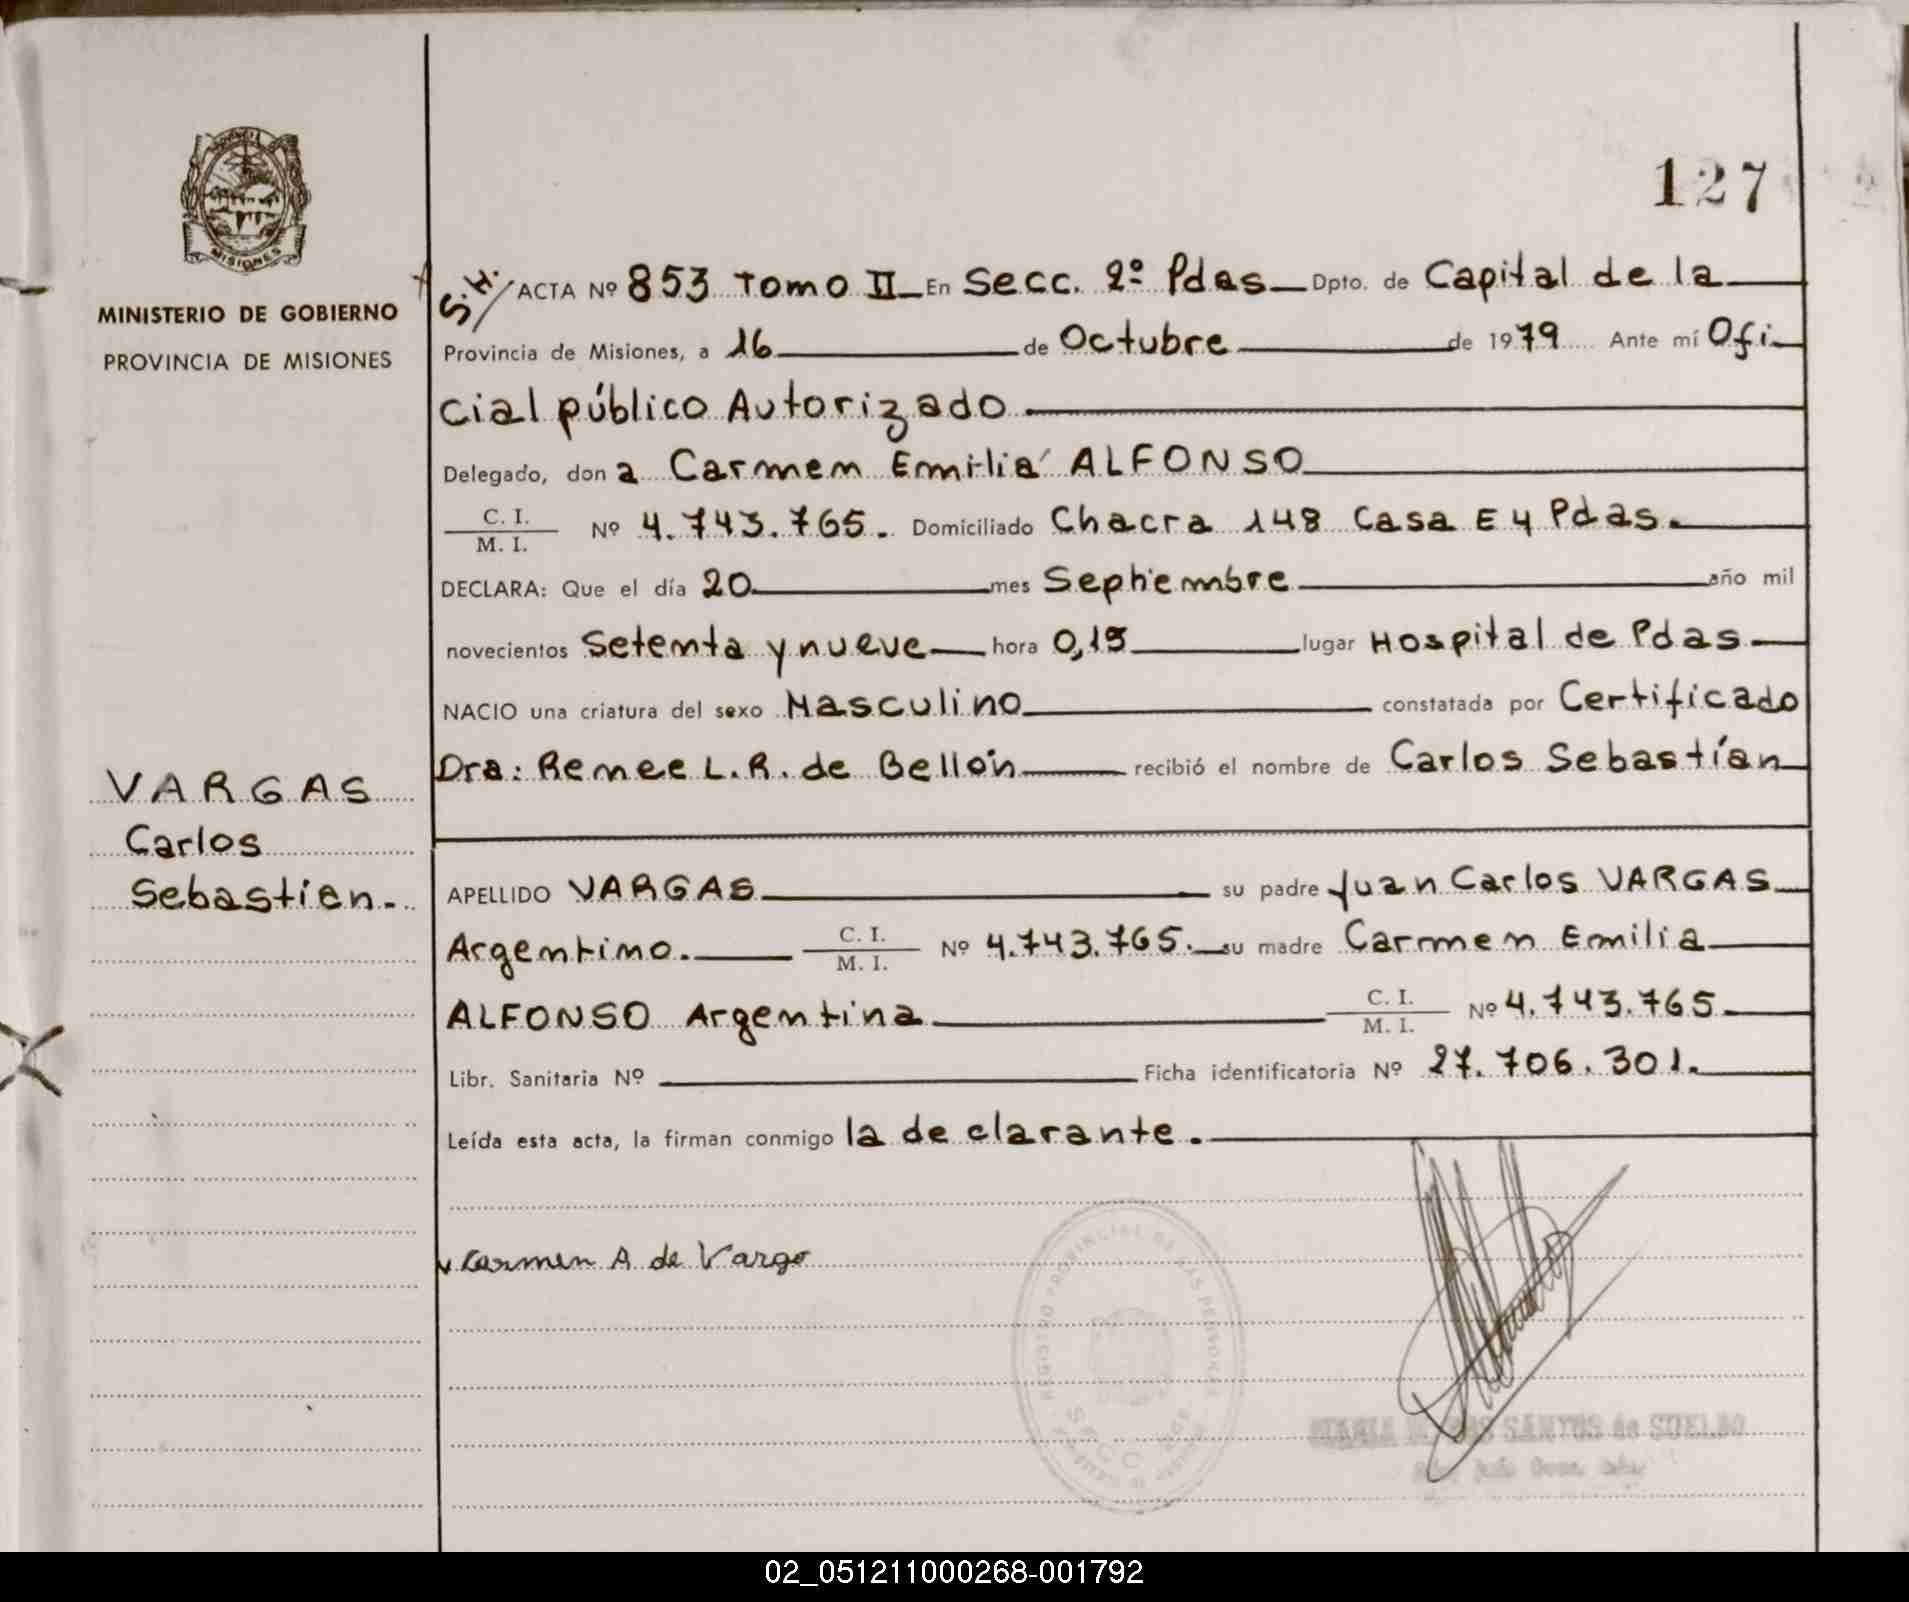 127
MISIONES
MINISTERIO DE GOBIERNO
PROVINCIA DE MISIONES
S.H./ ACTA Nº 853 Tomo II En Secc. 2º Pdas Dpto. de Capital de la
Provincia de Misiones, a 16 de Octubre de 1979 Ante mí Ofi
cial público Autorizado
Delegado, don a Carmen Emilia ALFONSO
C. I.
M. I. Nº 4.743.765. Domiciliado Chacra 148 Casa E 4 Pdas.
DECLARA: Que el día 20 mes Septiembre año mil
novecientos Setenta y nueve hora 0,15 lugar Hospital de Pdas
NACIO una criatura del sexo Masculino constatada por Certificado
Dra: Renee L.R. de Bellón recibió el nombre de Carlos Sebastían
VARGAS
Carlos
Sebastien.
APELLIDO VARGAS su padre Juan Carlos VARGAS
Argentino. C. I.
M. I. Nº 4.743.765. su madre Carmen Emilia
ALFONSO Argentina C. I.
M. I. Nº 4.743.765
Libr. Sanitaria Nº Ficha identificatoria Nº 27.706.301.
Leída esta acta, la firman conmigo la de clarante.
Carmen A de Vargo
REGISTRO PROVINCIAL DE LAS PERSONAS
SECC
SANTOS de SUELDO
02_051211000268-001792